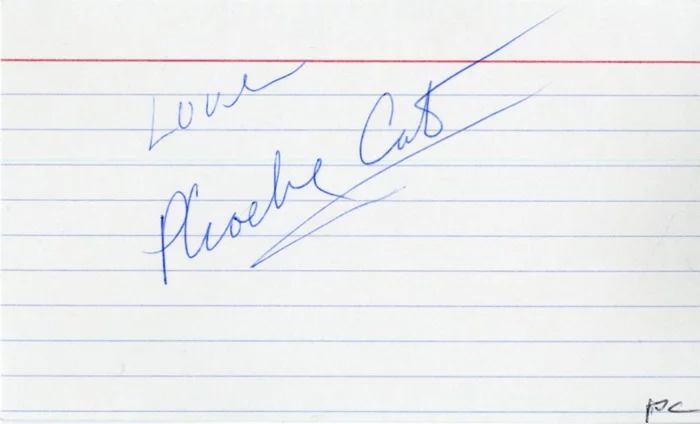 Love
Phoebe Cates
PC